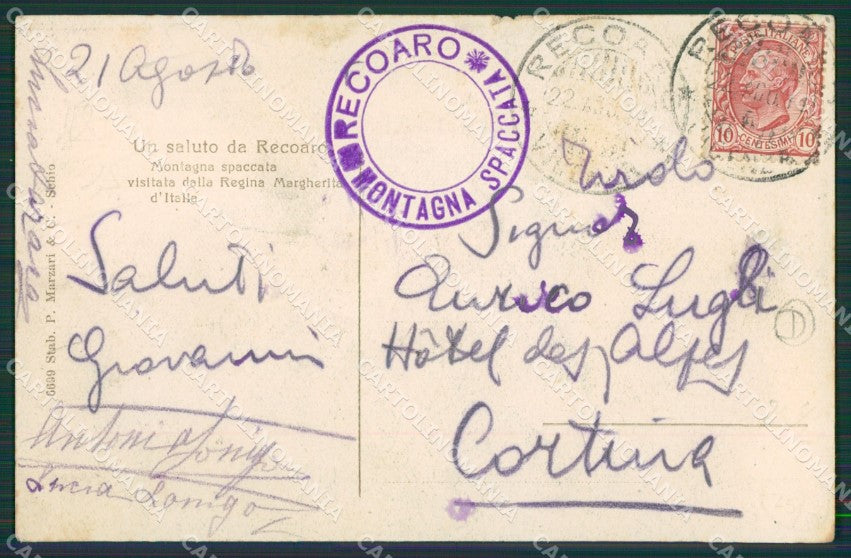 21 Agosto
Un saluto da Recoaro
Montagna spaccata
visitata dalla Regina Margherita
d'Italia
Saluti
Giovanni
Antonio Lonigo
Lucia Lonigo
6699 Stab. P. Marzari & C. - Schio
RECOARO
MONTAGNA SPACCATA
RECOARO
22
RECOARO
POSTE ITALIANE
10 CENTESIMI 10
Signor
Enrico Lugli
Hôtel des Alpes
Cortina
CARTOLINOMANIA